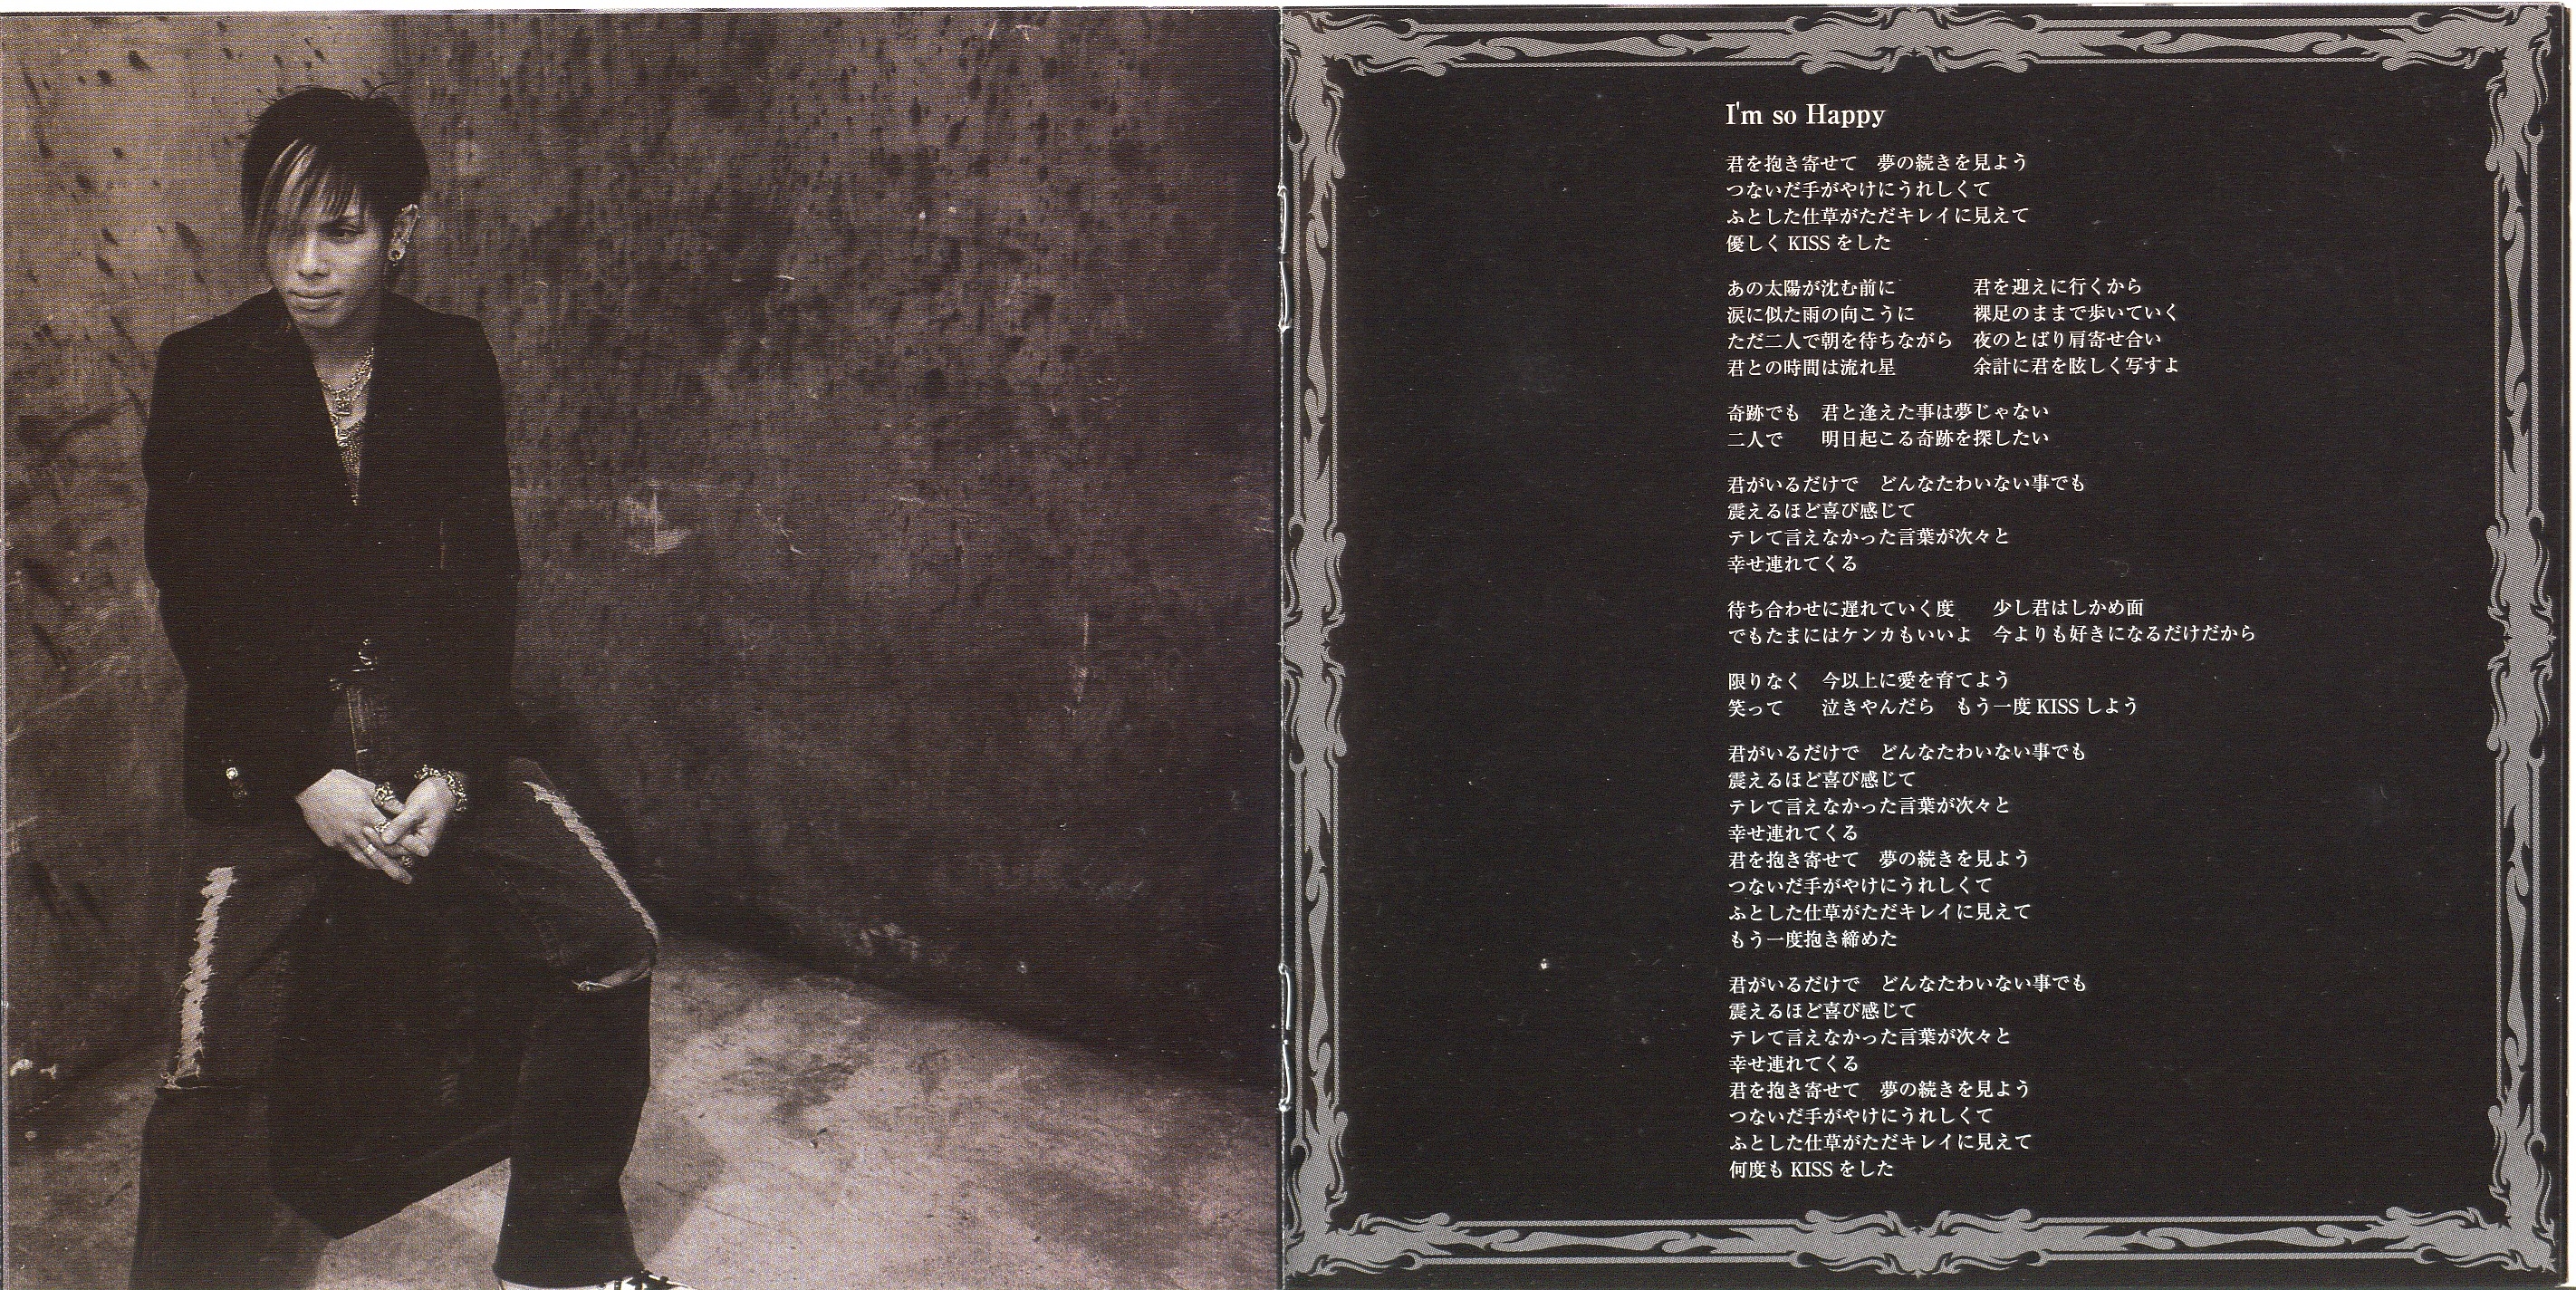 I'm so Happy
君を抱き寄せて　夢の続きを見よう
つないだ手がやけにうれしくて
ふとした仕草がただキレイに見えて
優しく KISS をした
あの太陽が沈む前に　　　　君を迎えに行くから
涙に似た雨の向こうに　　　裸足のままで歩いていく
ただ二人で朝を待ちながら　夜のとばり肩寄せ合い
君との時間は流れ星　　　　余計に君を眩しく写すよ
奇跡でも　君と逢えた事は夢じゃない
二人で　　明日起こる奇跡を探したい
君がいるだけで　どんなたわいない事でも
震えるほど喜び感じて
テレて言えなかった言葉が次々と
幸せ連れてくる
待ち合わせに遅れていく度　　少し君はしかめ面
でもたまにはケンカもいいよ　今よりも好きになるだけだから
限りなく　今以上に愛を育てよう
笑って　　泣きやんだら　もう一度 KISS しよう
君がいるだけで　どんなたわいない事でも
震えるほど喜び感じて
テレて言えなかった言葉が次々と
幸せ連れてくる
君を抱き寄せて　夢の続きを見よう
つないだ手がやけにうれしくて
ふとした仕草がただキレイに見えて
もう一度抱き締めた
君がいるだけで　どんなたわいない事でも
震えるほど喜び感じて
テレて言えなかった言葉が次々と
幸せ連れてくる
君を抱き寄せて　夢の続きを見よう
つないだ手がやけにうれしくて
ふとした仕草がただキレイに見えて
何度も KISS をした